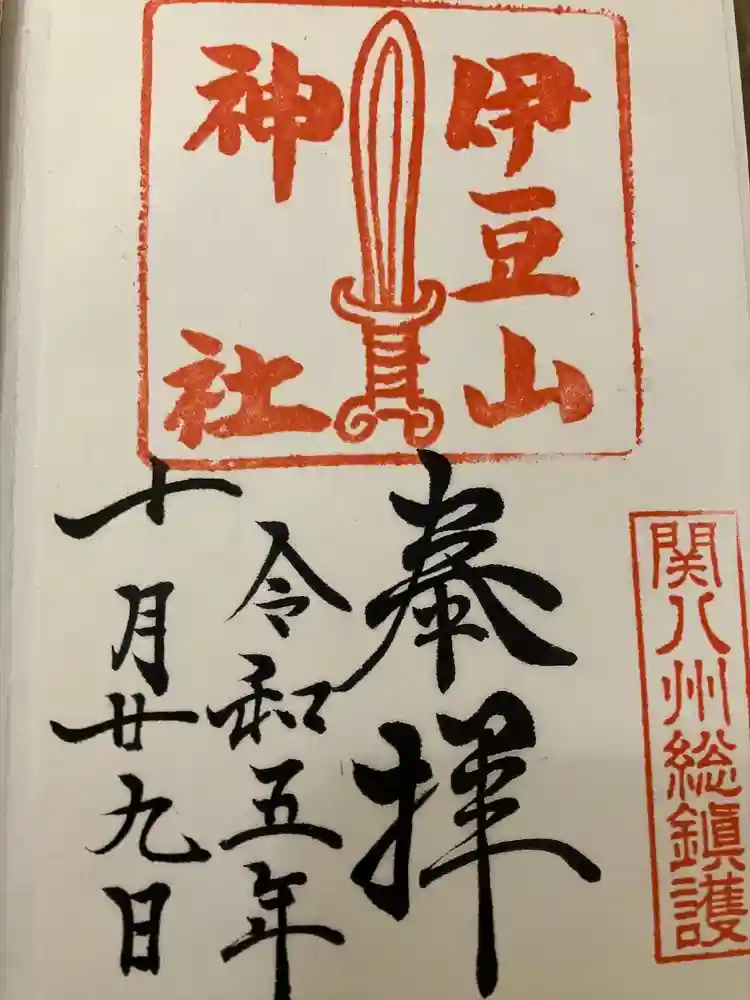 関八州総鎮護
伊豆山
神社
奉拝
令和五年
十月廿九日